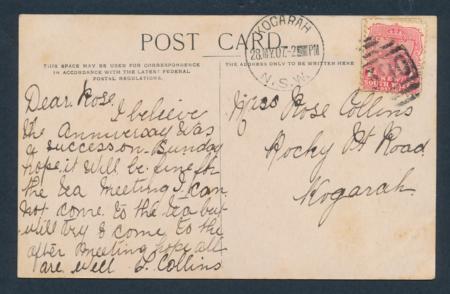 POST CARD.
THIS SPACE MAY BE USED FOR CORRESPONDENCE
IN ACCORDANCE WITH THE LATEST FEDERAL
POSTAL REGULATIONS.
THE ADDRESS ONLY TO BE WRITTEN HERE
KOGARAH
28.MY.07
N.S.W.
Dear Rose,
I believe
the Anniversay was
a success on Sunday
hope it will be fine for
the tea meeting I can
not come to the tea but
will try & come to the
after meeting hope all
are well L. Collins
Miss Rose Collins
Rocky Pt Road
Kogarah.